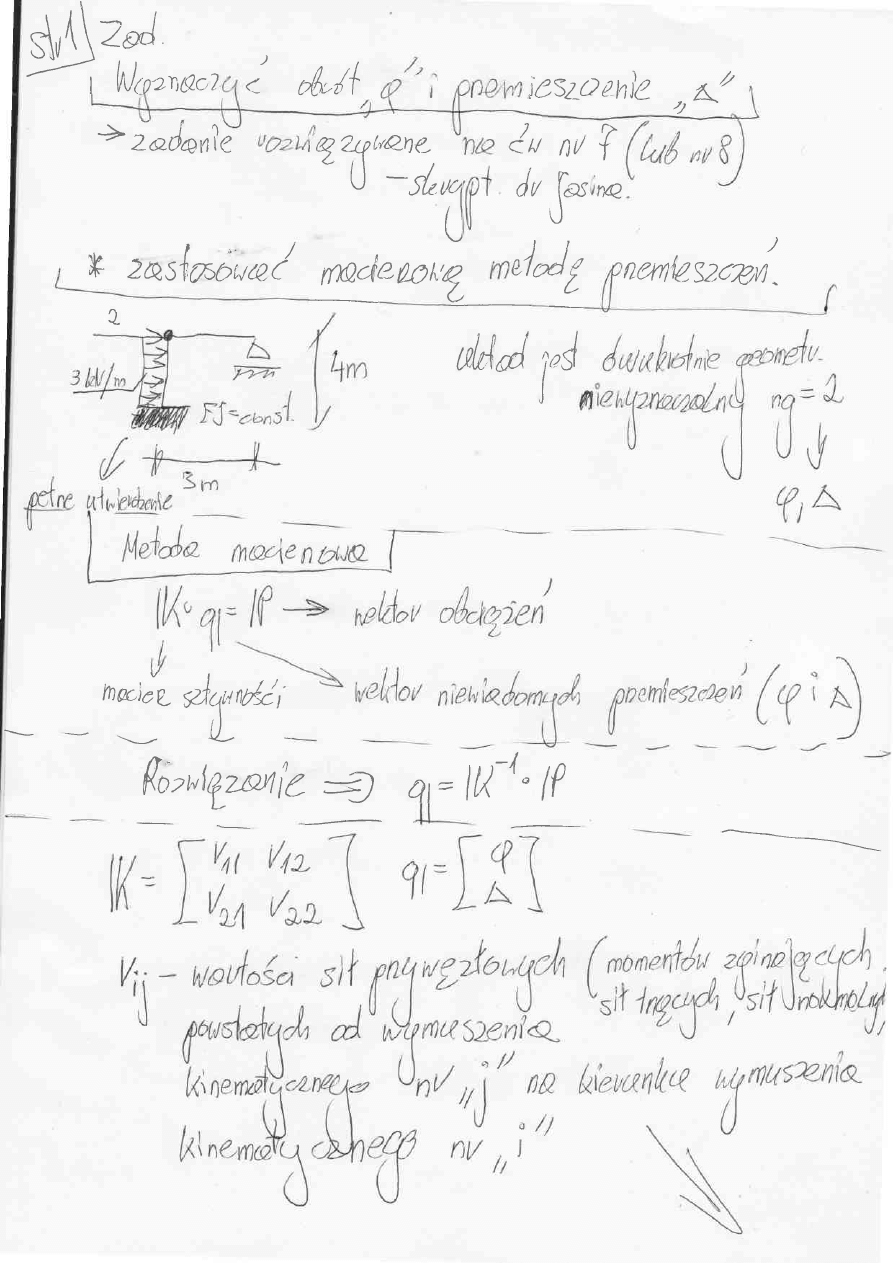 str 1 Zad.
Wyznaczyć obrót „φ” i przemieszczenie „Δ”
→ zadanie rozwiązywane na ćw nr 7 (lub nr 8)
– skrypt. dr Jasina.
* zastosować macierzową metodę przemieszczeń.
2
3 kN/m
4m
EJ=const.
3m
pełne utwierdzenie
układ jest dwukrotnie geometr.
niewyznaczalny ng=2
φ, Δ
Metoda macierzowa
K · q = P → wektor obciążeń
macierz sztywności
wektor niewiadomych przemieszczeń (φ i Δ)
Rozwiązanie ⇒ q = K⁻¹ · P
K = [ V11 V12
V21 V22 ]
q = [ φ
Δ ]
Vij – wartości sił przywęzłowych (momentów zginających,
sił tnących, sił normalnych)
powstałych od wymuszenia
kinematycznego nr „j” na kierunku wymuszenia
kinematycznego nr „i”